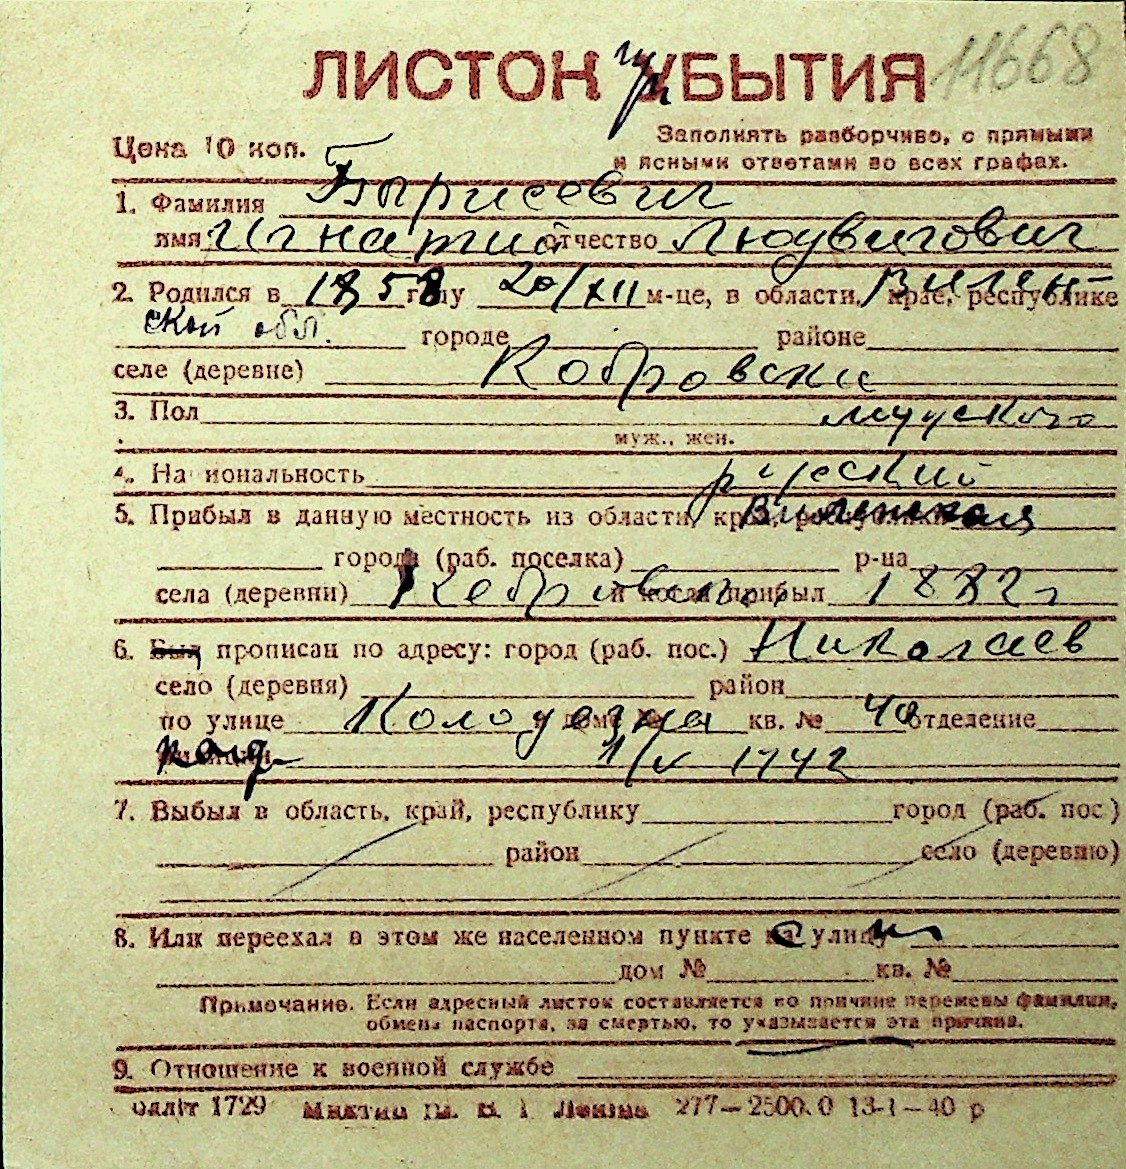 ЛИСТОК при УБЫТИЯ 11668
Цена 10 коп. Заполнять разборчиво, с прямыми
и ясными ответами во всех графах.
1. Фамилия Борисевич
имя Игнатий отчество Людвигович
2. Родился в 1858 году 20/XII м-це, в области, крае, республике Вилен-
ской обл. городе районе
селе (деревне) Кобровски
3. Пол мужского
муж., жен.
4. Национальность русский
5. Прибыл в данную местность из области, края, республики Виленская
города (раб. поселка) р-на
села (деревни) и когда прибыл 1882 г
6. Был прописан по адресу: город (раб. пос.) Николаев
село (деревня) район
по улице Колодезная дом № кв. № 40 отделение
милиции 1/V 1942
7. Выбыл в область, край, республику город (раб. пос.)
район село (деревню)
8. Или переехал в этом же населенном пункте на улицу
дом № кв. №
Примечание. Если адресный листок составляется по причине перемены фамилии,
обмена паспорта, за смертью, то указывается эта причина.
9. Отношение к военной службе
1729 277—2500.0 13-1—40 р